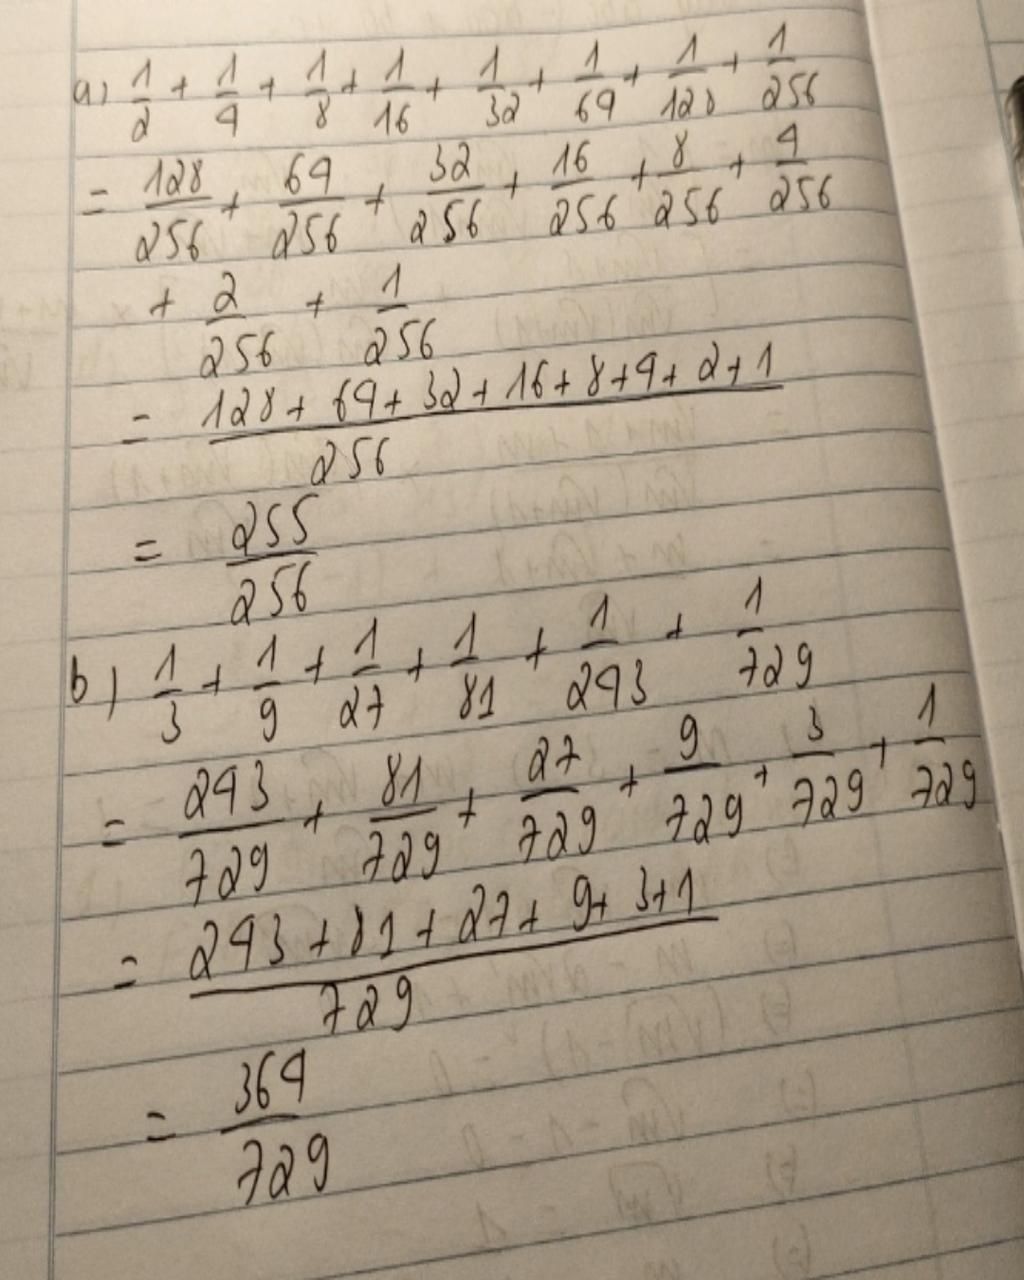 a) 1/2 + 1/4 + 1/8 + 1/16 + 1/32 + 1/64 + 1/128 + 1/256
= 128/256 + 64/256 + 32/256 + 16/256 + 8/256 + 4/256
+ 2/256 + 1/256
= (128 + 64 + 32 + 16 + 8 + 4 + 2 + 1)/256
= 255/256
b) 1/3 + 1/9 + 1/27 + 1/81 + 1/243 + 1/729
= 243/729 + 81/729 + 27/729 + 9/729 + 3/729 + 1/729
= (243 + 81 + 27 + 9 + 3 + 1)/729
= 364/729